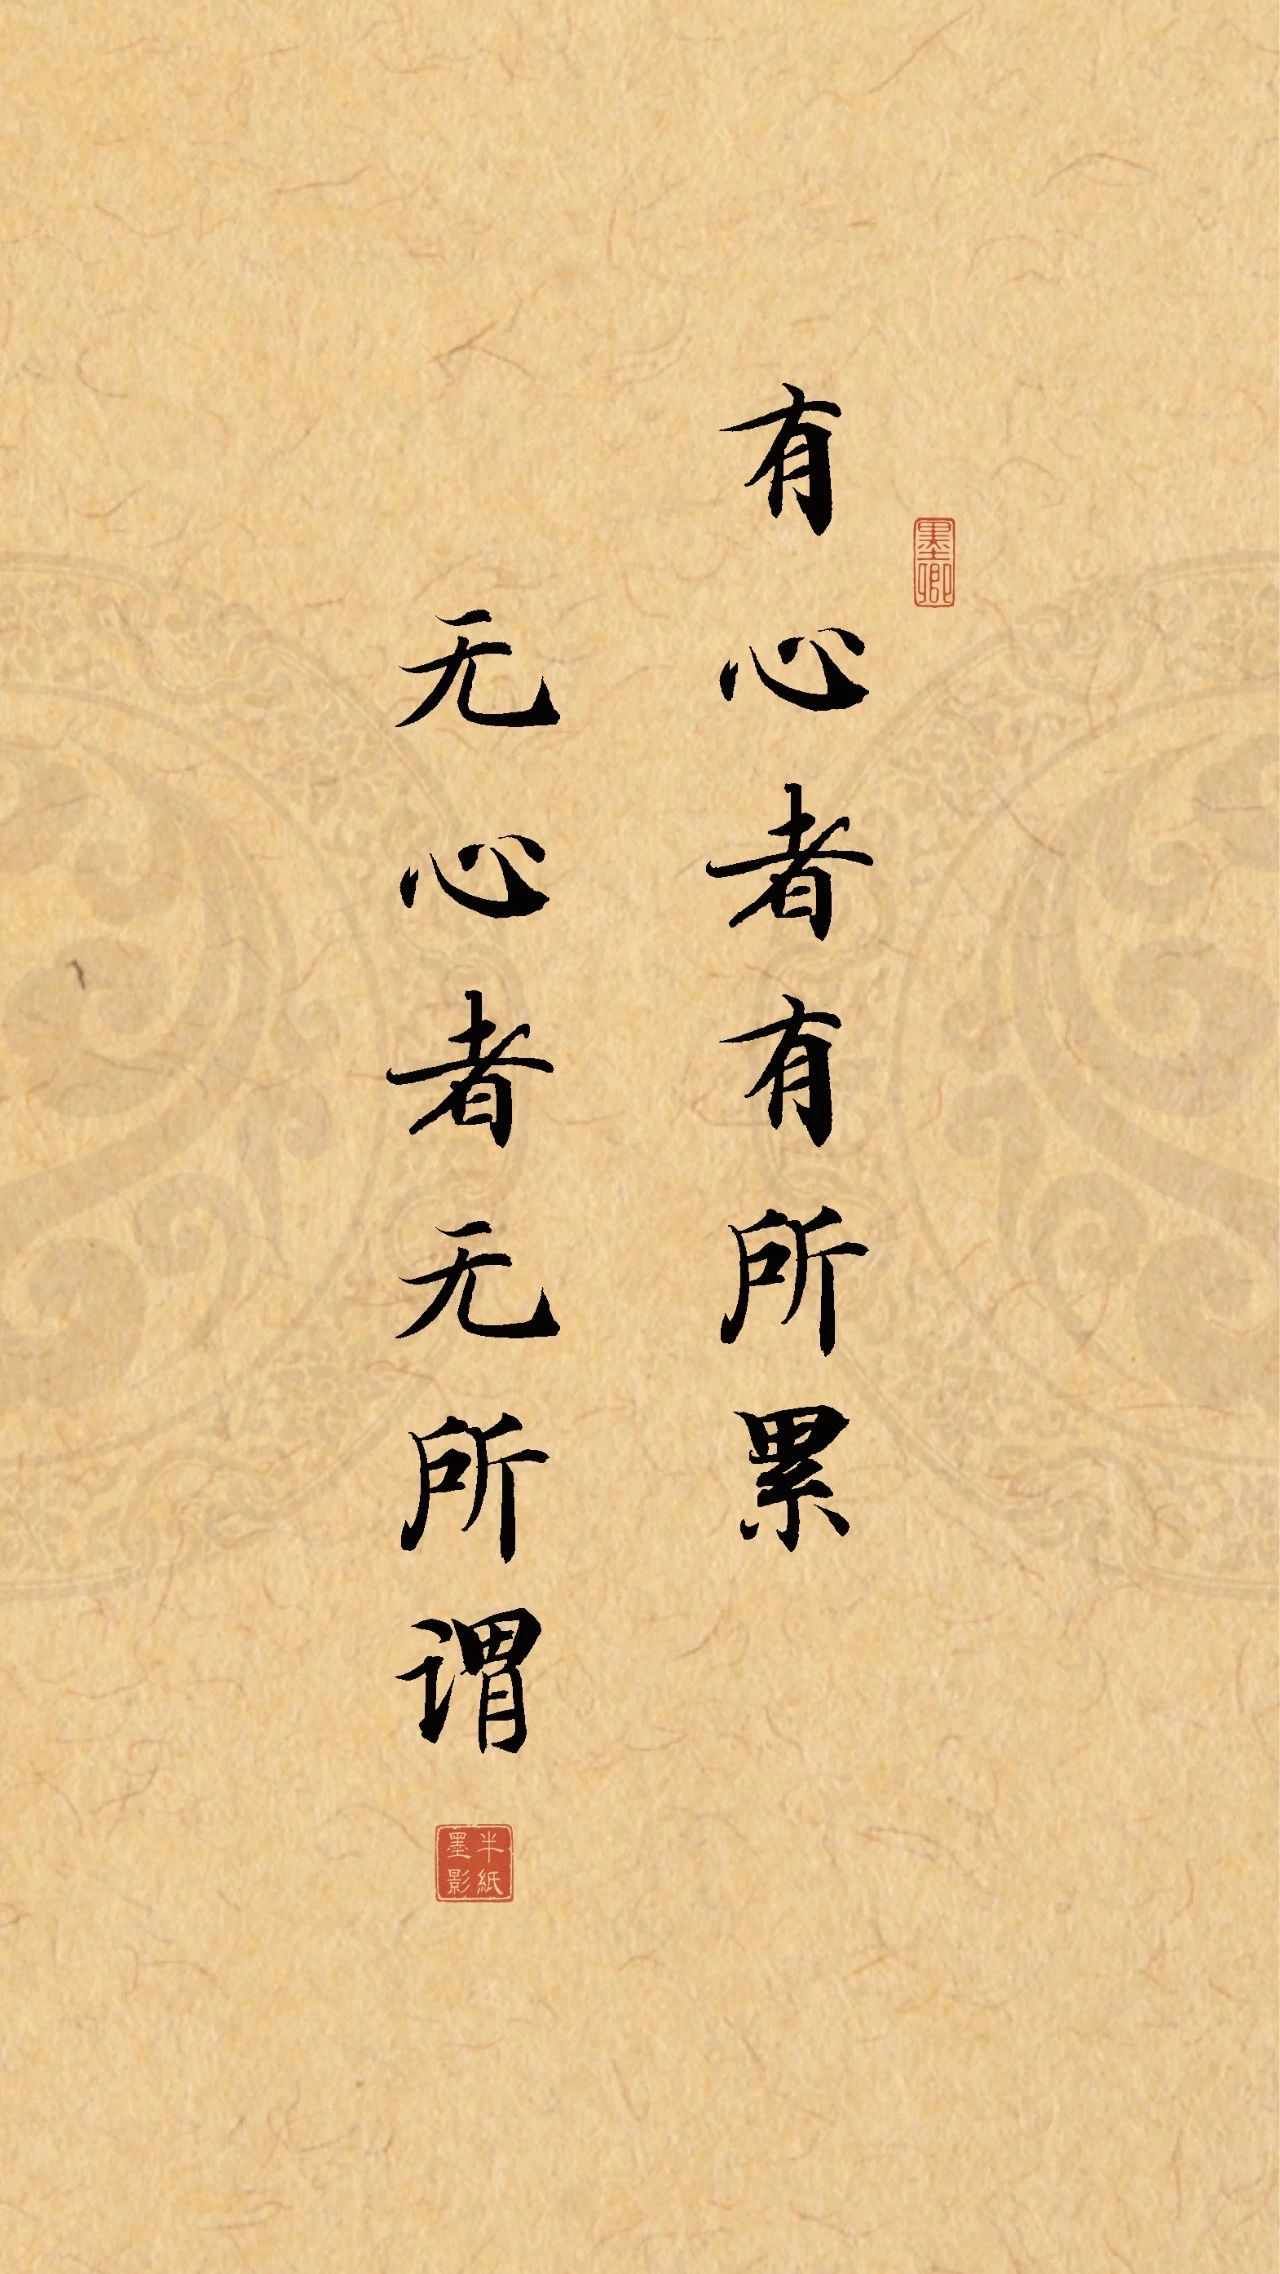 有心者有所累
墨卿
无心者无所谓
半紙
墨影